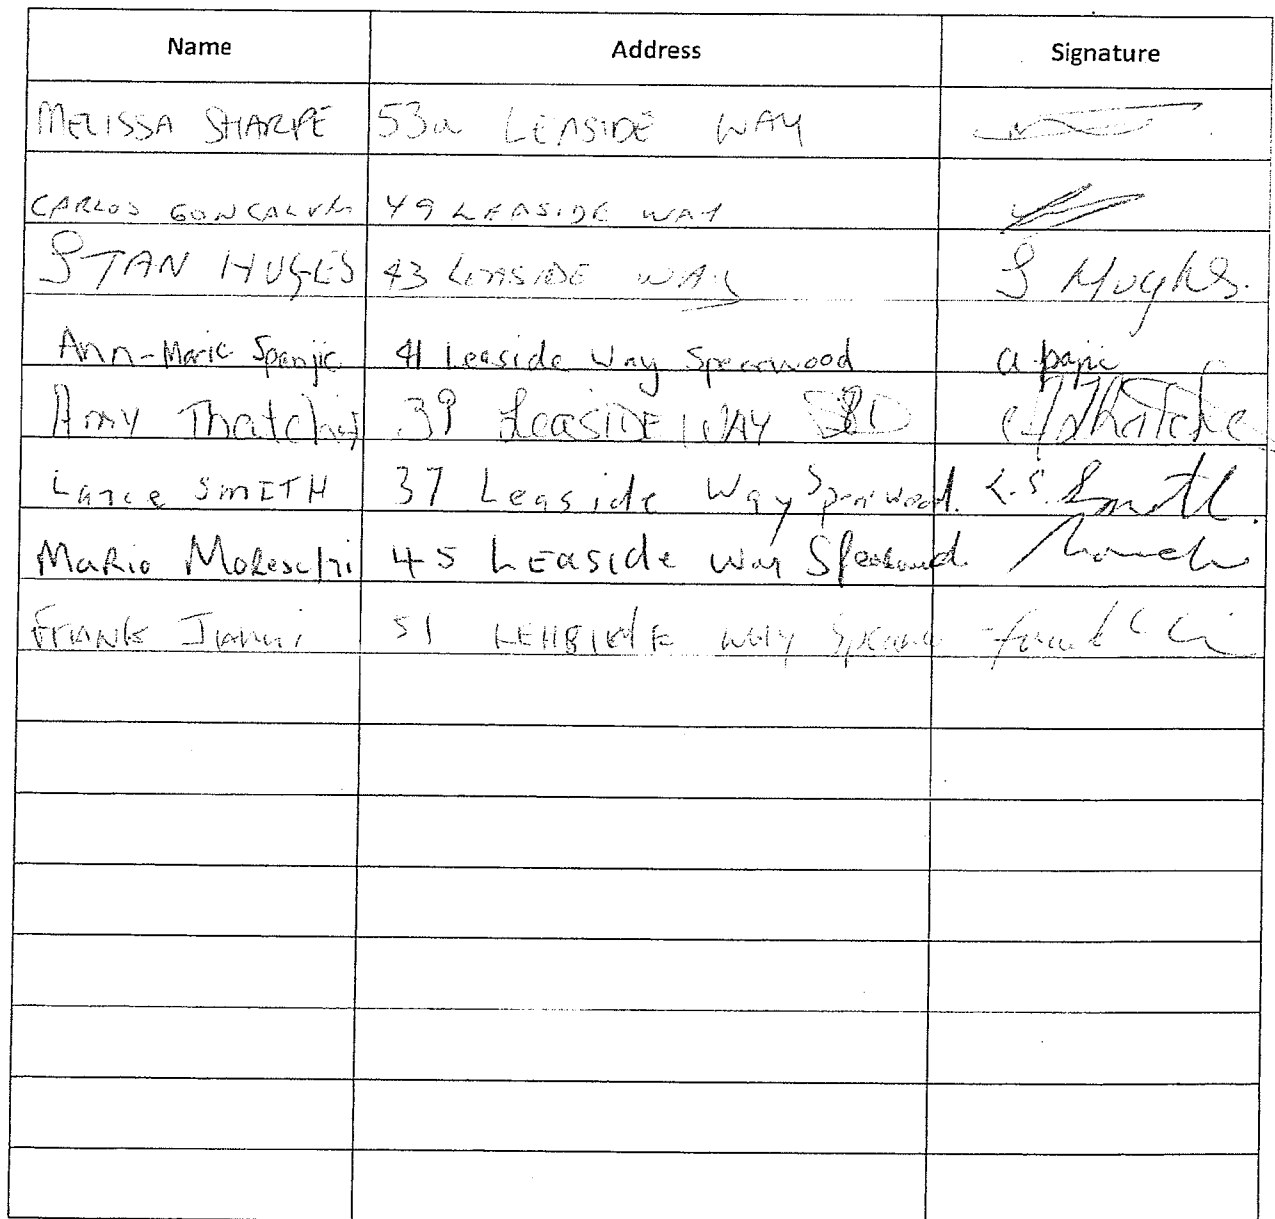 Name Address Signature
MELISSA SHARPE 53a LEASIDE WAY
CARLOS GONCALVES 49 LEASIDE WAY
STAN HUGES 43 LEASIDE WAY S Hughes.
Ann-Marie Spanjic 41 Leaside Way Spearwood
Amy Thatcher 39 LeaSIDE WAY A Thatcher
Lance SMITH 37 Leaside Way Spearwood. L.S. Smith.
MaRio MoReschi 45 LEaside Way Spearwood
FRANK 51 WAY